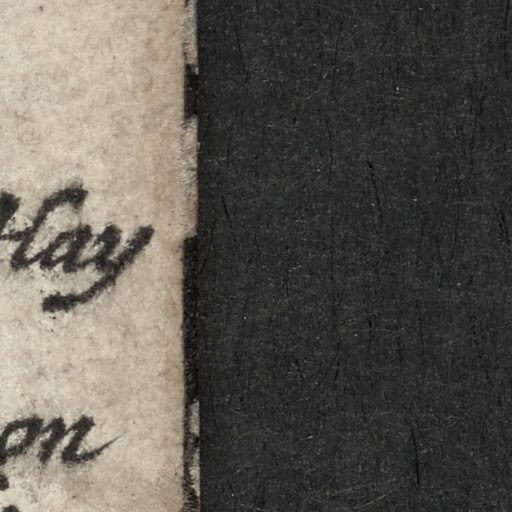 Hay
on